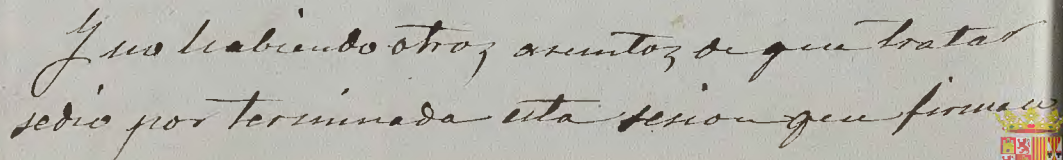 Y no habiendo otros asuntos de que tratar
se dio por terminada esta sesion que firman